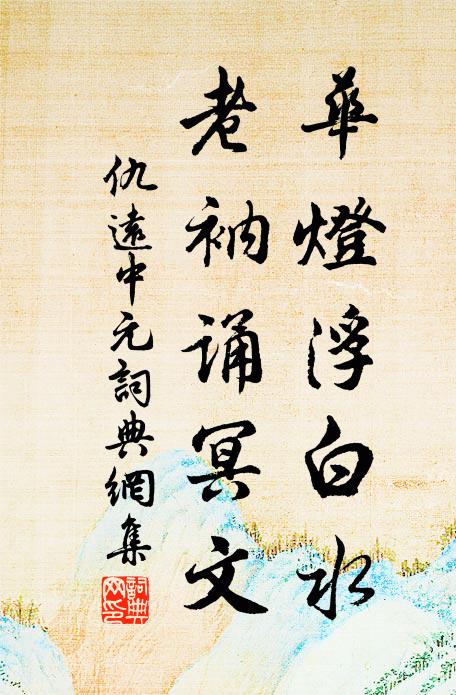 華燈浮白水
老衲誦冥文
仇遠中元詞典網集
詞典网印